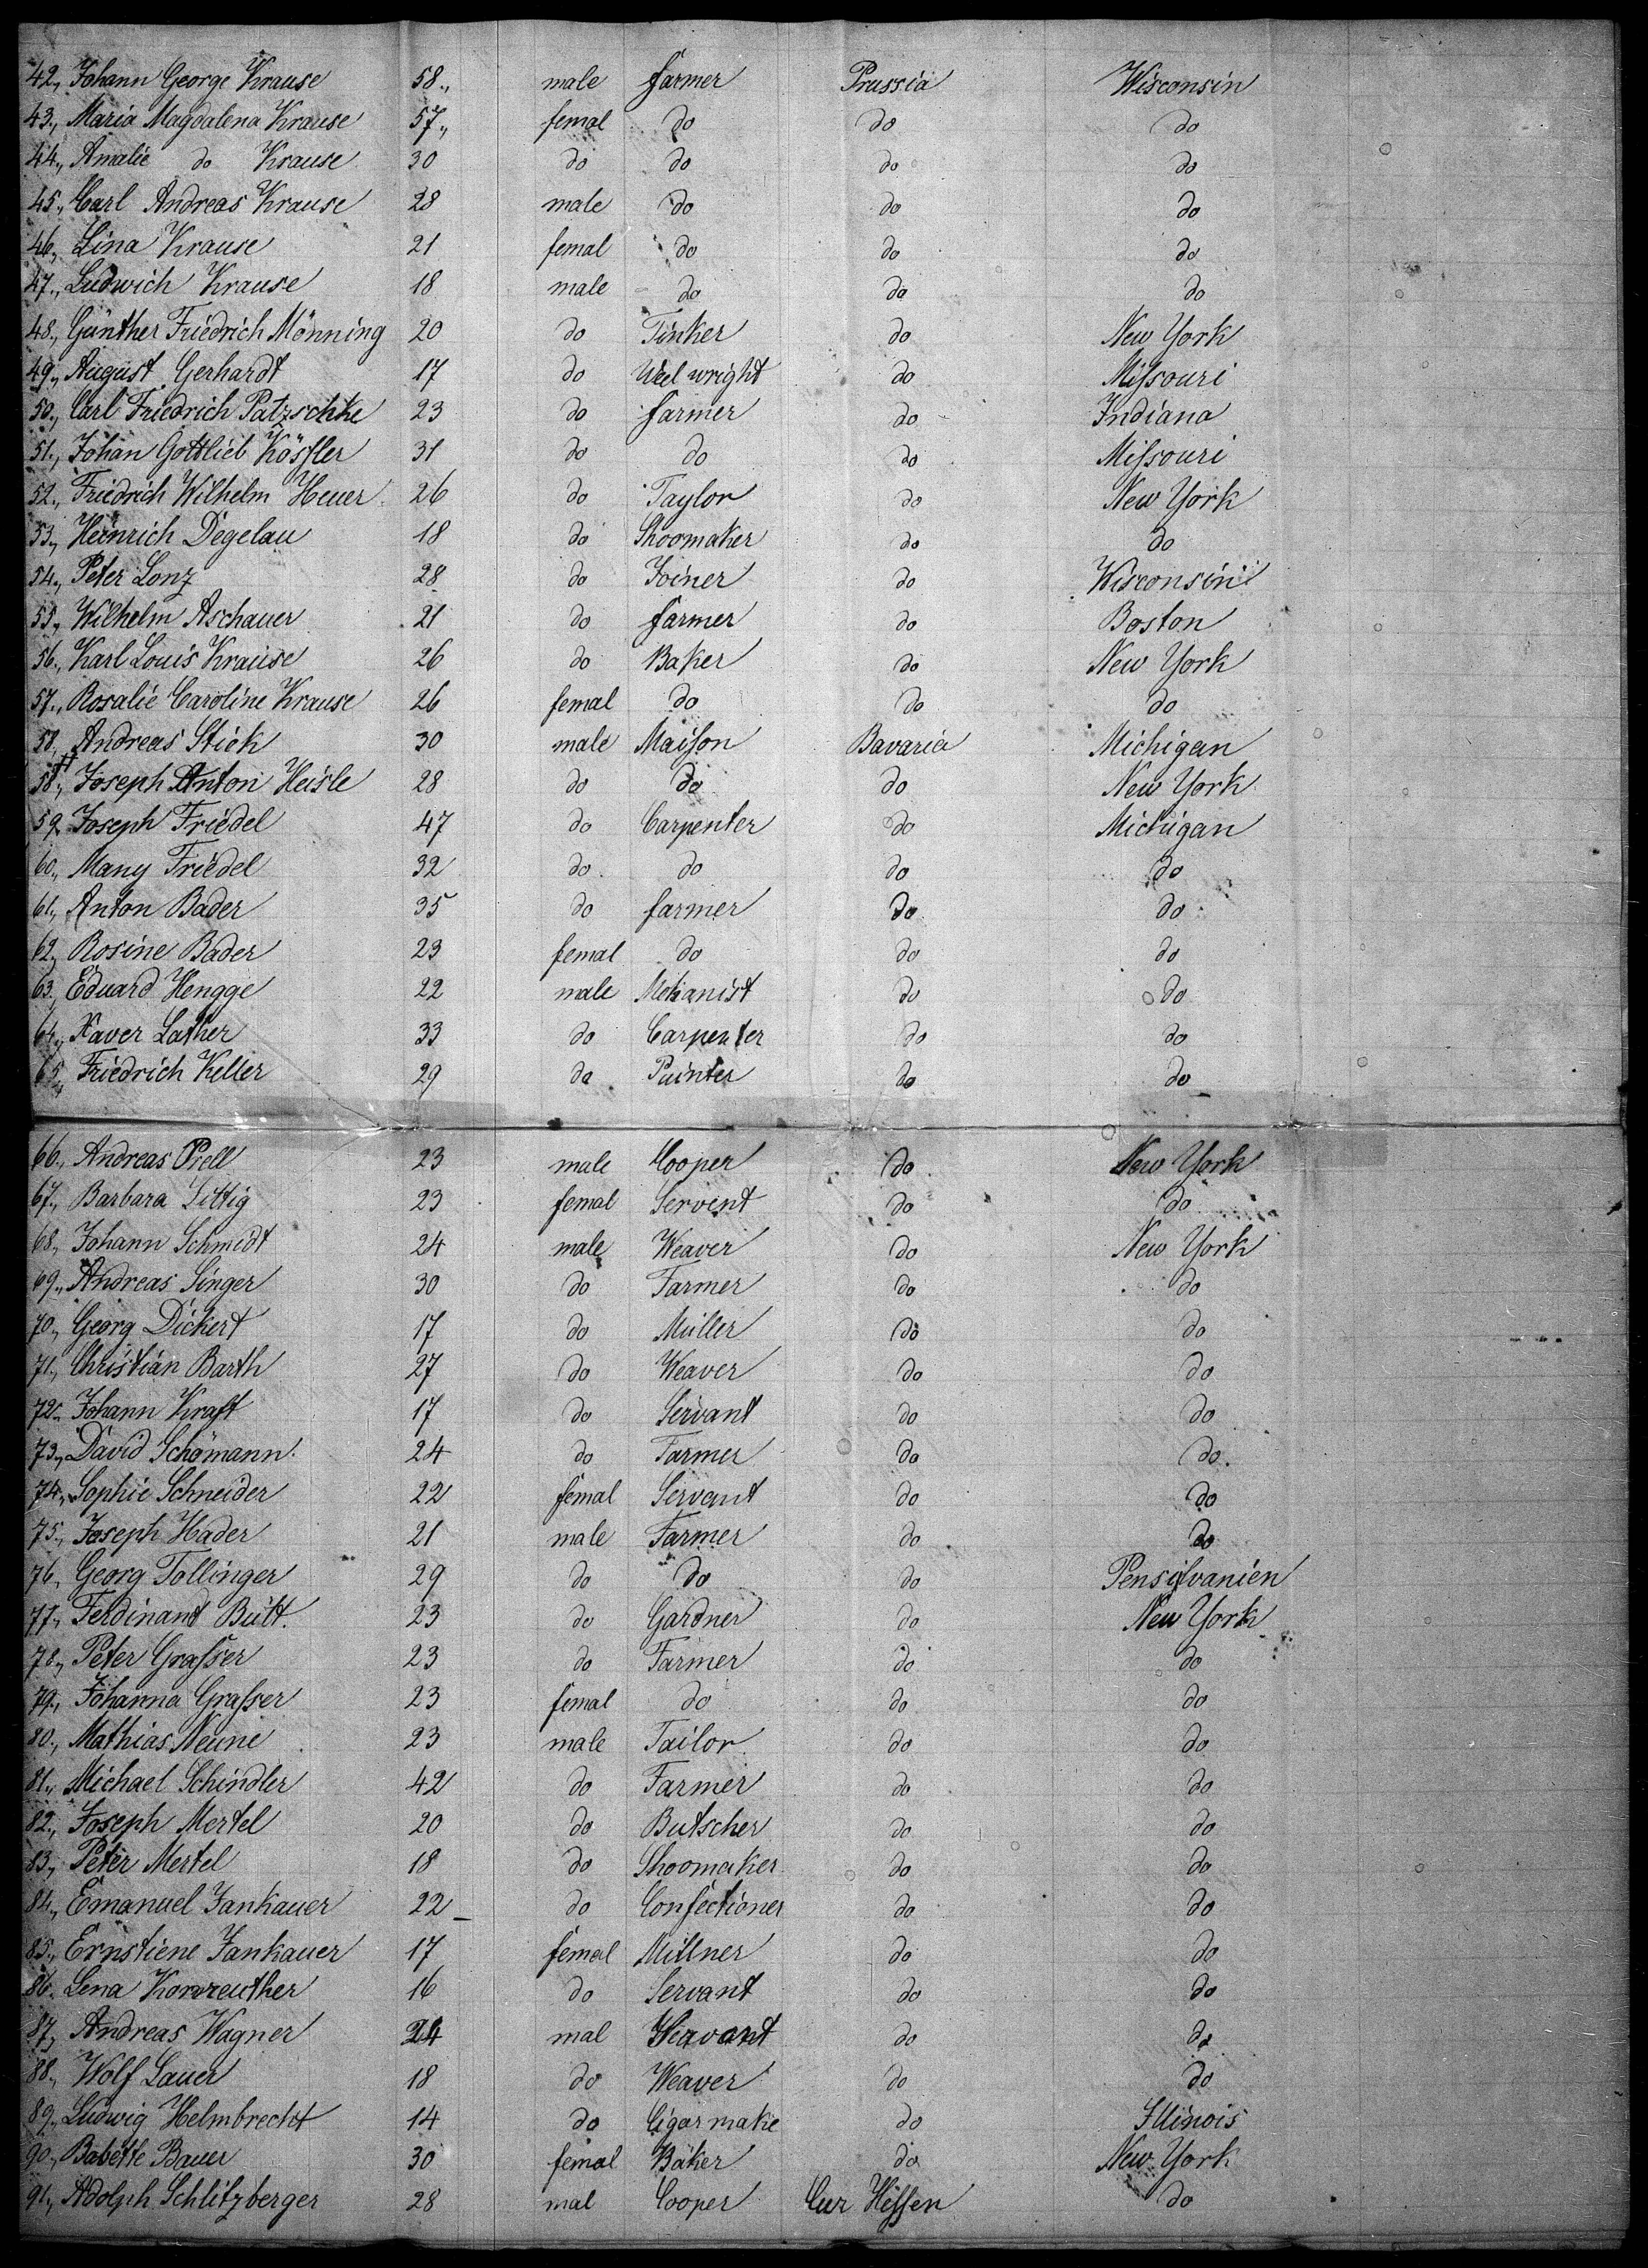 42., Johann George Krause 58., male farmer Prussia Wisconsin
43., Maria Magdalena Krause 57., femal do do do
44., Amalie do Krause 30 do do do do
45., Carl Andreas Krause 28 male do do do
46., Lina Krause 21 femal do do do
47., Ludwich Krause 18 male do do do
48., Günther Friedrich Mönning 20 do Tinker do New York
49., August Gerhardt 17 do Weel wright do Missouri
50., Carl Friedrich Patzschke 23 do farmer do Indiana
51., Johan Gottlieb Kössler 31 do do do Missouri
52., Friedrich Wilhelm Heuer 26 do Taylor do New York
53., Heinrich Degelau 18 do Shoomaker do do
54., Peter Lonz 28 do Joiner do Wisconsin
55., Wilhelm Aschauer 21 do farmer do Boston
56., Karl Louis Krause 26 do Baker do New York
57., Rosalie Caroline Krause 26 femal do do do
58., Andreas Stick 30 male Maison Bavaria Michigan
58., Joseph Anton Heisle 28 do do do New York
59., Joseph Friedel 47 do Carpenter do Michigan
60., Many Friedel 32 do do do do
61., Anton Bader 35 do farmer do do
62., Rosine Bader 23 femal do do do
63., Eduard Hengge 22 male Mekanist do do
64., Xaver Lather 33 do Carpenter do do
65., Friedrich Keller 29 do Painter do do
66., Andreas Prell 23 male Cooper do New York
67., Barbara Sittig 23 femal Servent do do
68., Johann Schmidt 24 male Weaver do New York
69., Andreas Singer 30 do Farmer do do
70., Georg Dickert 17 do Müller do do
71., Christian Barth 27 do Weaver do do
72., Johann Kraft 17 do Servant do do
73., David Schömann 24 do Farmer do do
74., Sophie Schneider 22 femal Servant do do
75., Joseph Hader 21 male Farmer do do
76., Georg Tollinger 29 do do do Pensilvanien
77., Ferdinand Butt. 23 do Gardner do New York
78., Peter Grasser 23 do Farmer do do
79., Johanna Grasser 23 femal do do do
80., Mathias Neune 23 male Tailor do do
81., Michael Schindler 42 do Farmer do do
82., Joseph Mertel 20 do Butscher do do
83., Peter Mertel 18 do Shoomaker do do
84., Emanuel Jankauer 22 do Confectioner do do
85., Ernstiene Jankauer 17 femal Millner do do
86., Lena Konzreuther 16 do Servant do do
87., Andreas Wagner 24 mal Servant do do
88., Wolf Lauer 18 do Weaver do do
89., Ludwig Helmbrecht 14 do Cigar make do Illinois
90., Babette Bauer 30 femal Baker do New York
91., Adolph Schlitzberger 28 mal Cooper Cur Hessen do